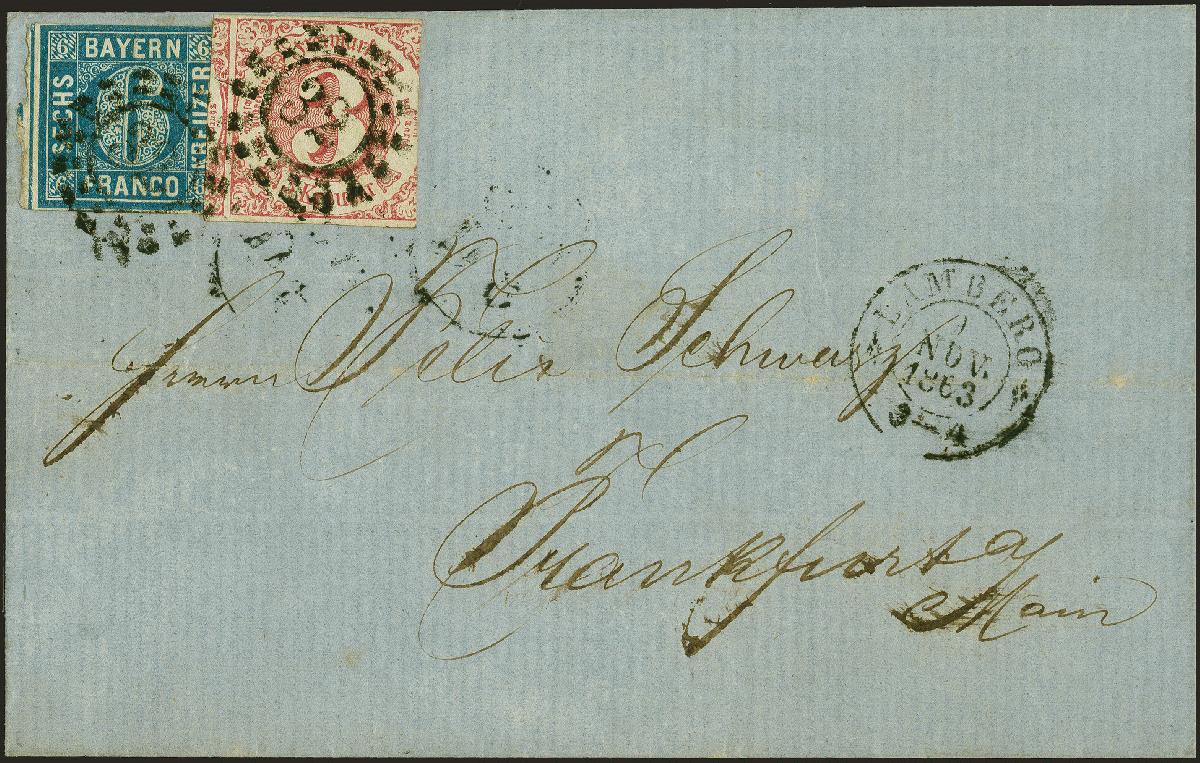 6 BAYERN 6
SECHS
6
KREUZER
6 FRANCO 6
Kreuzer
3
Kreuzer
BAMBERG
NOV.
1863
3-4
Herrn Felix Schwarz
Frankfurt a/
Main